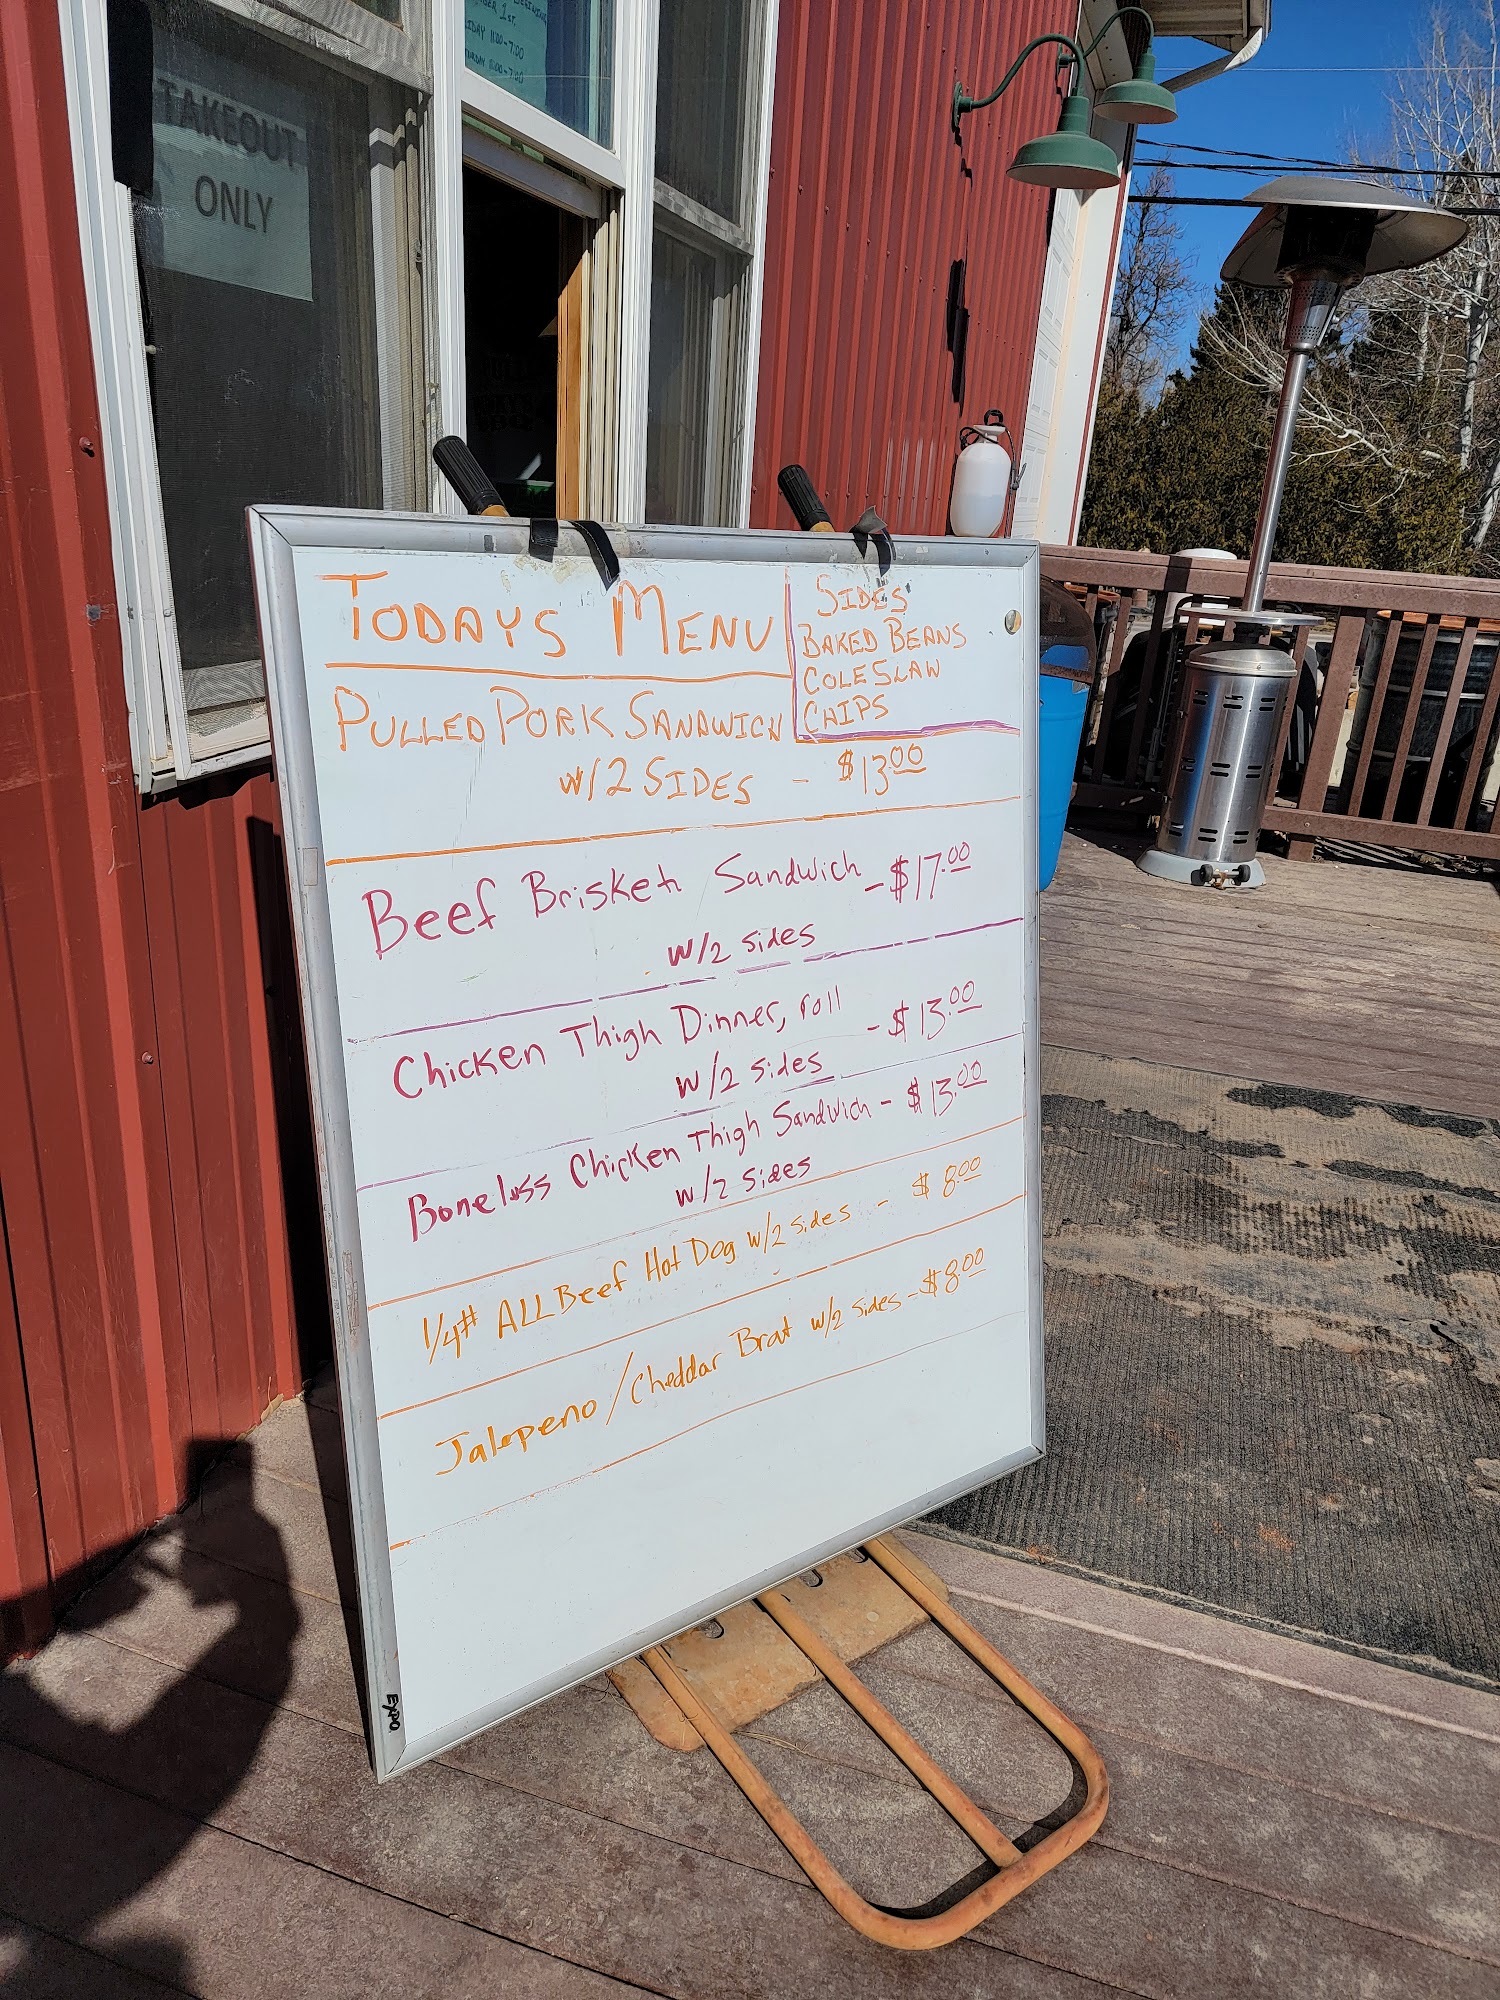 1st.
11:00-7:00
TAKEOUT
ONLY
TODAYS MENU
SIDES
BAKED BEANS
COLESLAW
CHIPS
PULLED PORK SANDWICH
W/2 SIDES - $13.00
Beef Brisket Sandwich - $17.00
w/2 sides
Chicken Thigh Dinner, roll - $13.00
w/2 sides
Boneless Chicken Thigh Sandwich - $13.00
w/2 sides
1/4# ALL Beef Hot Dog w/2 sides - $8.00
Jalepeno/Cheddar Brat w/2 sides - $8.00
EXPO